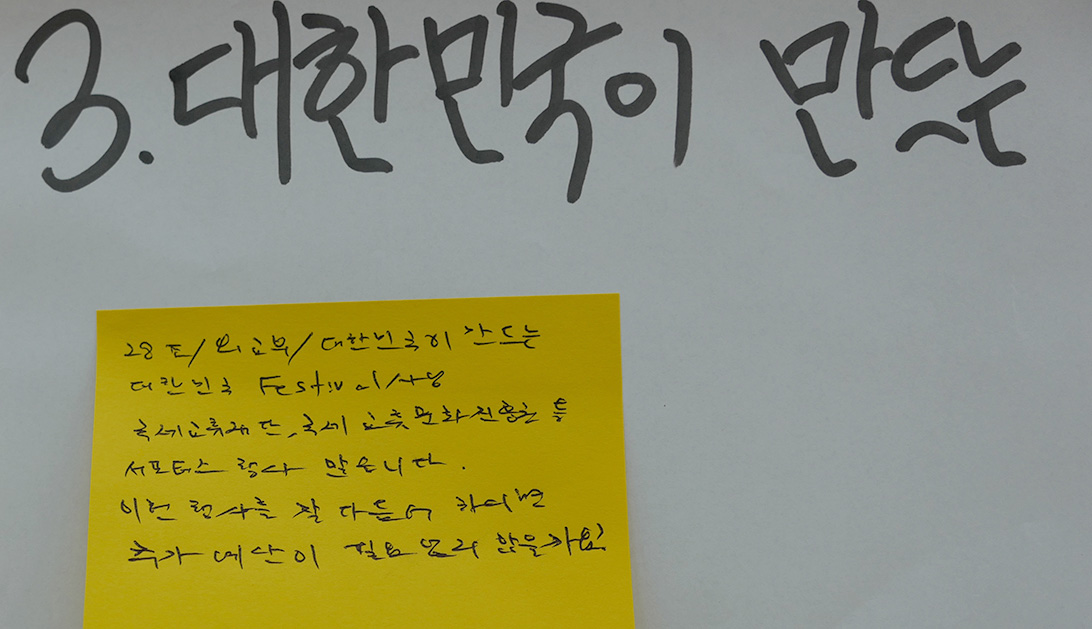 3. 대한민국이 만드는
28 토/외교부/대한민국이 만드는
대한민국 Festival/사당
국제교류재단, 국제교류문화진흥원 등
서포터스 행사 많습니다.
이런 행사를 잘 다듬어 하시면
추가 예산이 필요 없지 않을까요?